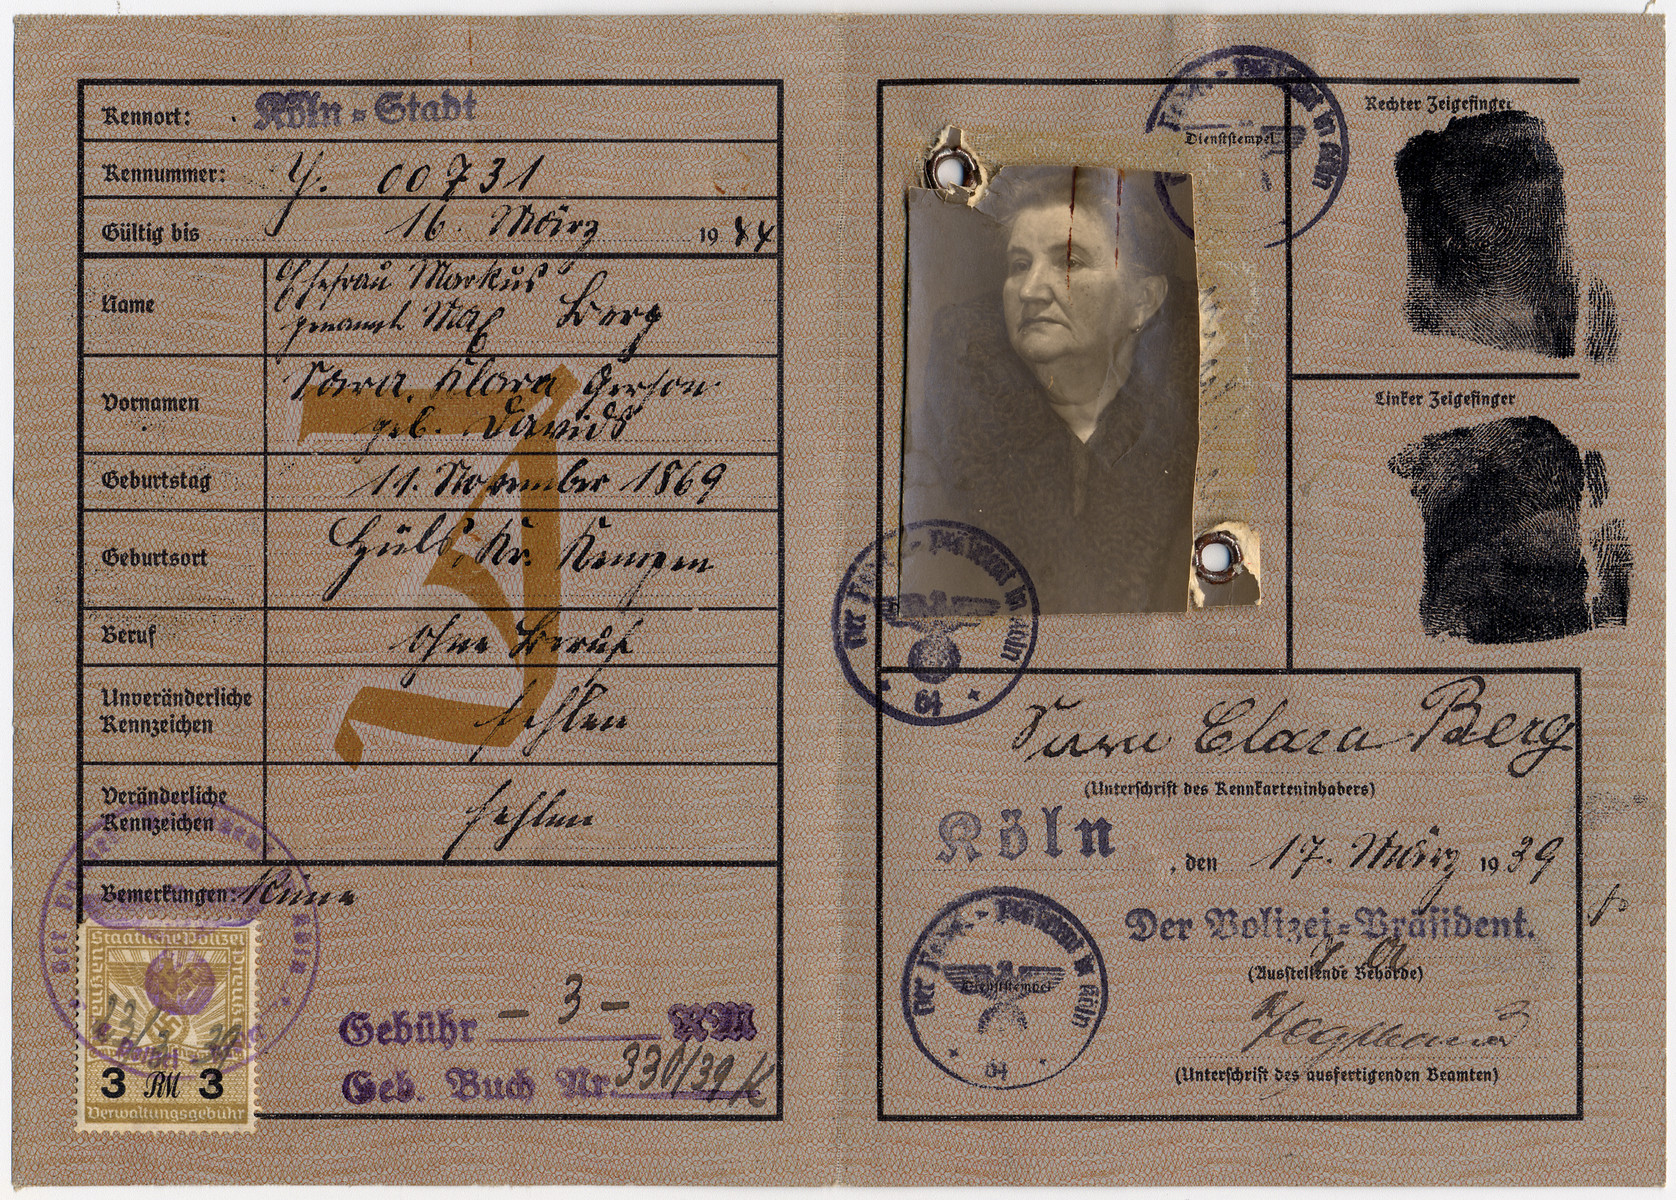 Kennort: Köln-Stadt
Kennummer: J. 00731
Gültig bis 16. März 1944
Name
Ehefrau Markus
genannt Max Berg
Vornamen
Sara, Klara Gerson
geb. Davids
Geburtstag 11. November 1869
Geburtsort Hüls, Kr. Kempen
Beruf ohne Beruf
Unveränderliche
Kennzeichen fehlen
Veränderliche
Kennzeichen fehlen
Bemerkungen: Keine
J
Staatliche Polizei
Preußen
3 RM 3
Verwaltungsgebühr
Gebühr – 3 – RM
Geb. Buch Nr. 330/39
Dienststempel
Rechter Zeigefinger
Linker Zeigefinger
Der Pol.-Präsident in Köln
64
Sara Clara Berg
(Unterschrift des Kennkarteninhabers)
Köln, den 17. März 1939
Der Polizei-Präsident.
(Ausstellende Behörde)
Der Pol.-Präsident in Köln
Dienststempel
64
(Unterschrift des ausfertigenden Beamten)